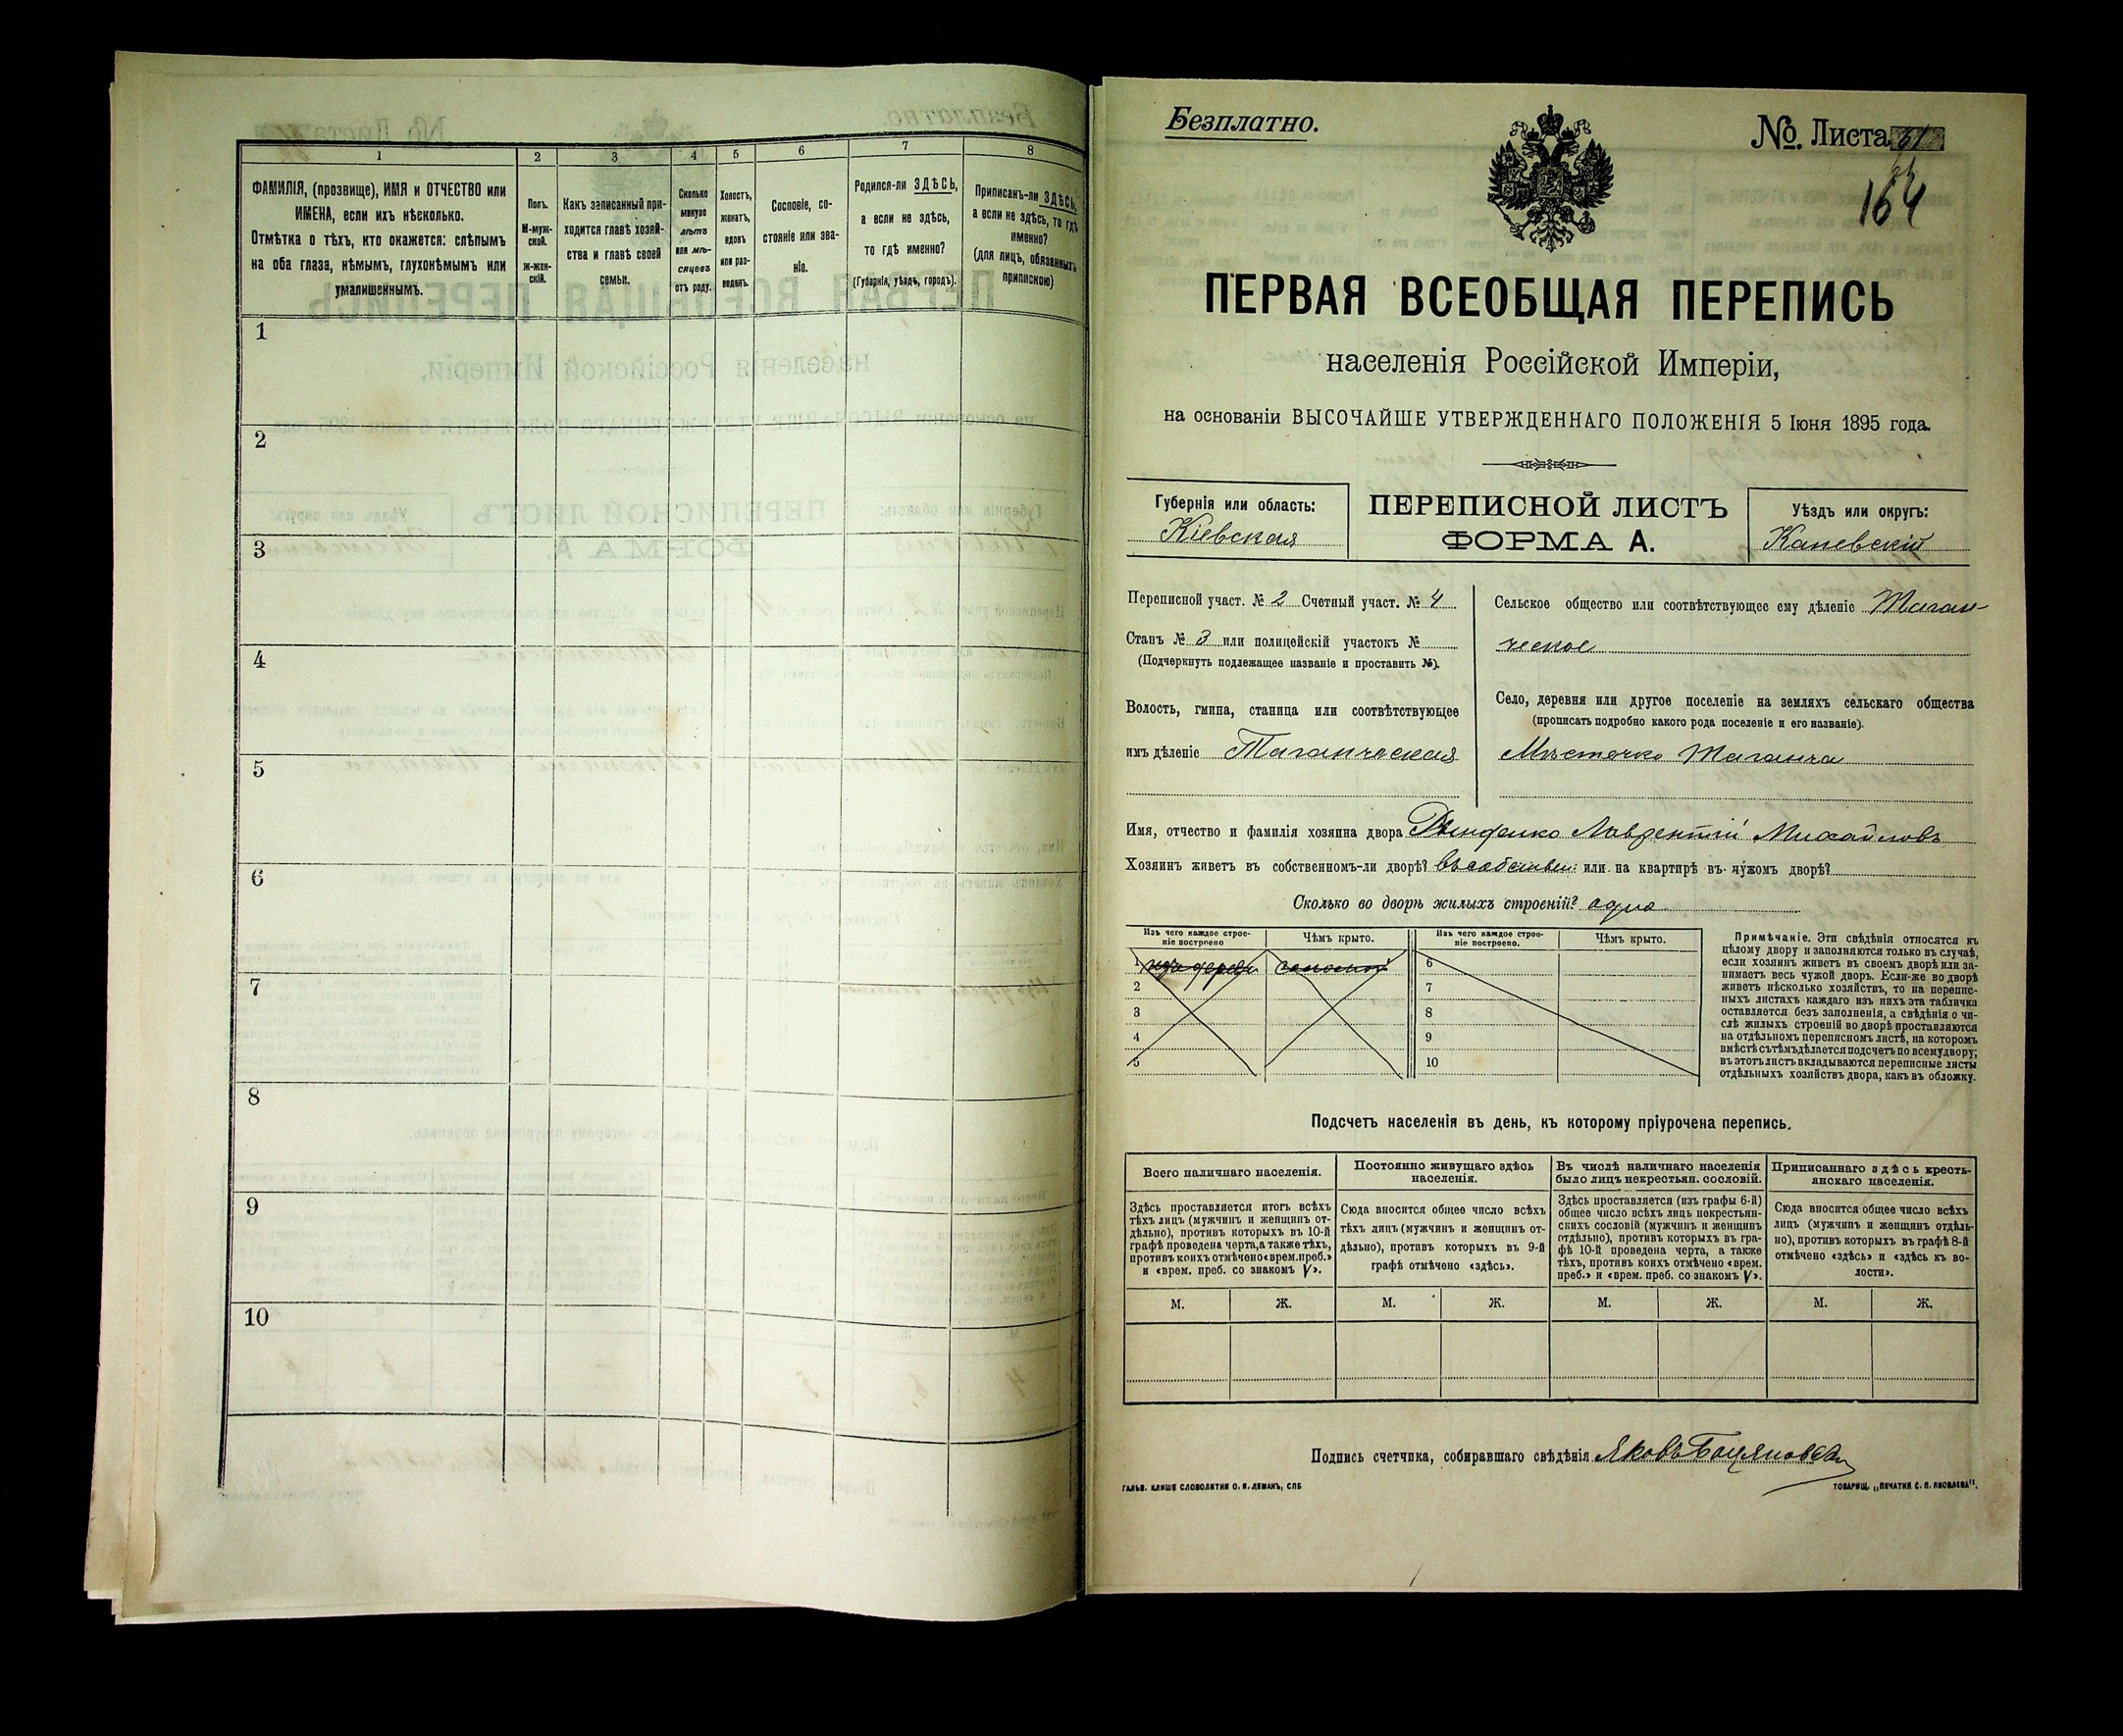 1
2
3
4
5
6
7
8
ФАМИЛІЯ, (прозвище), ИМЯ и ОТЧЕСТВО или
ИМЕНА, если ихъ нѣсколько.
Отмѣтка о тѣхъ, кто окажется: слѣпымъ
на оба глаза, нѣмымъ, глухонѣмымъ или
умалишеннымъ.
Полъ.
М-муж-
ской.
ж-жен-
скій.
Какъ записанный при-
ходится главѣ хозяй-
ства и главѣ своей
семьи.
Сколько
минуло
лѣтъ
или мѣ-
сяцевъ
отъ роду.
Холостъ,
женатъ,
вдовъ
или раз-
веденъ.
Сословіе, со-
стояніе или зва-
ніе.
Родился-ли ЗДѢСЬ,
а если не здѣсь,
то гдѣ именно?
(Губернія, уѣздъ, городъ).
Приписанъ-ли ЗДѢСЬ,
а если не здѣсь, то гдѣ
именно?
(для лицъ, обязанныхъ
припискою)
1
2
3
4
5
6
7
8
9
10
Безплатно.
№. Листа 61
164
ПЕРВАЯ ВСЕОБЩАЯ ПЕРЕПИСЬ
населенія Россійской Имперіи,
на основаніи ВЫСОЧАЙШЕ УТВЕРЖДЕННАГО ПОЛОЖЕНІЯ 5 Іюня 1895 года.
Губернія или область:
Кіевская
ПЕРЕПИСНОЙ ЛИСТЪ
ФОРМА А.
Уѣздъ или округъ:
Каневскій
Переписной участ. № 2 Счетный участ. № 4
Станъ № 3 или полицейскій участокъ №
(Подчеркнуть подлежащее названіе и проставить №).
Волость, гмина, станица или соотвѣтствующее
имъ дѣленіе Таганческая
Сельское общество или соотвѣтствующее ему дѣленіе Таган-
ческое
Село, деревня или другое поселеніе на земляхъ сельскаго общества
(прописать подробно какого рода поселеніе и его названіе).
Мѣстечко Таганча
Имя, отчество и фамилія хозяина двора Лаврентій Михайловъ
Хозяинъ живетъ въ собственномъ-ли дворѣ? въ собствен: или на квартирѣ въ чужомъ дворѣ?
Сколько во дворѣ жилыхъ строеній? одно
Изъ чего каждое строе-
ніе построено
Чѣмъ крыто.
Изъ чего каждое строе-
ніе построено.
Чѣмъ крыто.
1 изъ дерева соломой
2
3
4
5
6
7
8
9
10
Примѣчаніе. Эти свѣдѣнія относятся къ
цѣлому двору и заполняются только въ случаѣ,
если хозяинъ живетъ въ своемъ дворѣ или за-
нимаетъ весь чужой дворъ. Если-же во дворѣ
живетъ нѣсколько хозяйствъ, то на перепис-
ныхъ листахъ каждаго изъ нихъ эта табличка
оставляется безъ заполненія, а свѣдѣнія о чи-
слѣ жилыхъ строеній во дворѣ проставляются
на отдѣльномъ переписномъ листѣ, на которомъ
вмѣстѣ съ тѣмъ дѣлается подсчетъ по всему двору;
въ этотъ листъ вкладываются переписные листы
отдѣльныхъ хозяйствъ двора, какъ въ обложку.
Подсчетъ населенія въ день, къ которому пріурочена перепись.
Всего наличнаго населенія.
Здѣсь проставляется итогъ всѣхъ
тѣхъ лицъ (мужчинъ и женщинъ от-
дѣльно), противъ которыхъ въ 10-й
графѣ проведена черта, а также тѣхъ,
противъ коихъ отмѣчено «врем. преб.»
и «врем. преб. со знакомъ V».
Постоянно живущаго здѣсь
населенія.
Сюда вносится общее число всѣхъ
тѣхъ лицъ (мужчинъ и женщинъ от-
дѣльно), противъ которыхъ въ 9-й
графѣ отмѣчено «здѣсь».
Въ числѣ наличнаго населенія
было лицъ некрестьян. сословій.
Здѣсь проставляется (изъ графы 6-й)
общее число всѣхъ лицъ некрестьян-
скихъ сословій (мужчинъ и женщинъ
отдѣльно), противъ которыхъ въ гра-
фѣ 10-й проведена черта, а также
тѣхъ, противъ коихъ отмѣчено «врем.
преб.» и «врем. преб. со знакомъ V».
Приписаннаго здѣсь кресть-
янскаго населенія.
Сюда вносится общее число всѣхъ
лицъ (мужчинъ и женщинъ отдѣль-
но), противъ которыхъ въ графѣ 8-й
отмѣчено «здѣсь» и «здѣсь къ во-
лости».
М. Ж. М. Ж. М. Ж. М. Ж.
Подпись счетчика, собиравшаго свѣдѣнія Яковъ
ГАЛЬВ. КЛИШЕ СЛОВОЛИТНИ О. И. ЛЕМАНЪ, СПБ
ТОВАРИЩ. „ПЕЧАТНЯ С. П. ЯКОВЛЕВА".